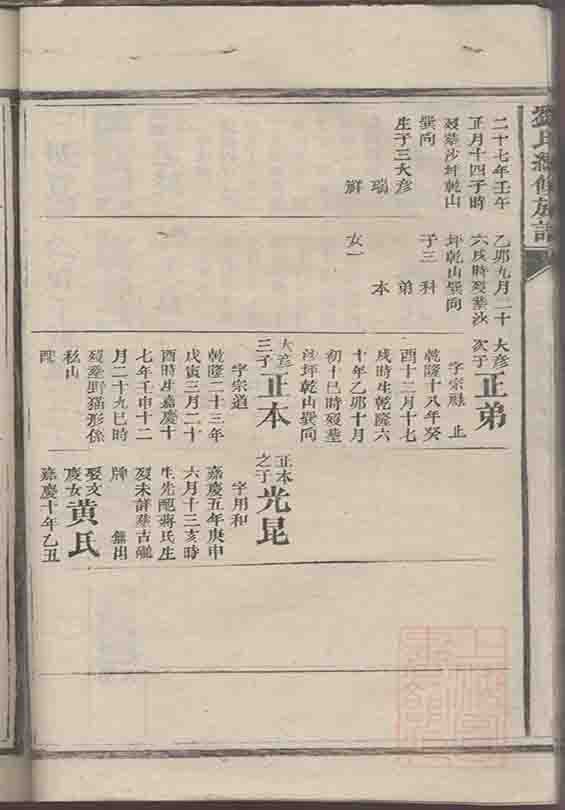 氏總修族譜
二十七年壬午
正月十四子時
歿葬沙坪乾山
巽向
生子三大彥
瑞
乙卯九月二十
六戌時歿葬沙
坪乾山巽向
子三 科
弟
本
女一
大彥
次子
正弟
字宗 止
乾隆十八年癸
酉十二月十七
戌時生乾隆六
十年乙卯十月
初十巳時歿葬
沙坪乾山巽向
大彥
三子
正本
字宗道
乾隆二十三年
戊寅三月二十
酉時生嘉慶十
七年壬申十二
月二十九巳時
歿葬野猫形係
私山
配
正本
之子
光昆
字用和
嘉慶五年庚申
六月十三亥時
生先配蔣氏生
歿未詳葬古
牌 無出
娶文
慶女
黄氏
嘉慶十年乙丑